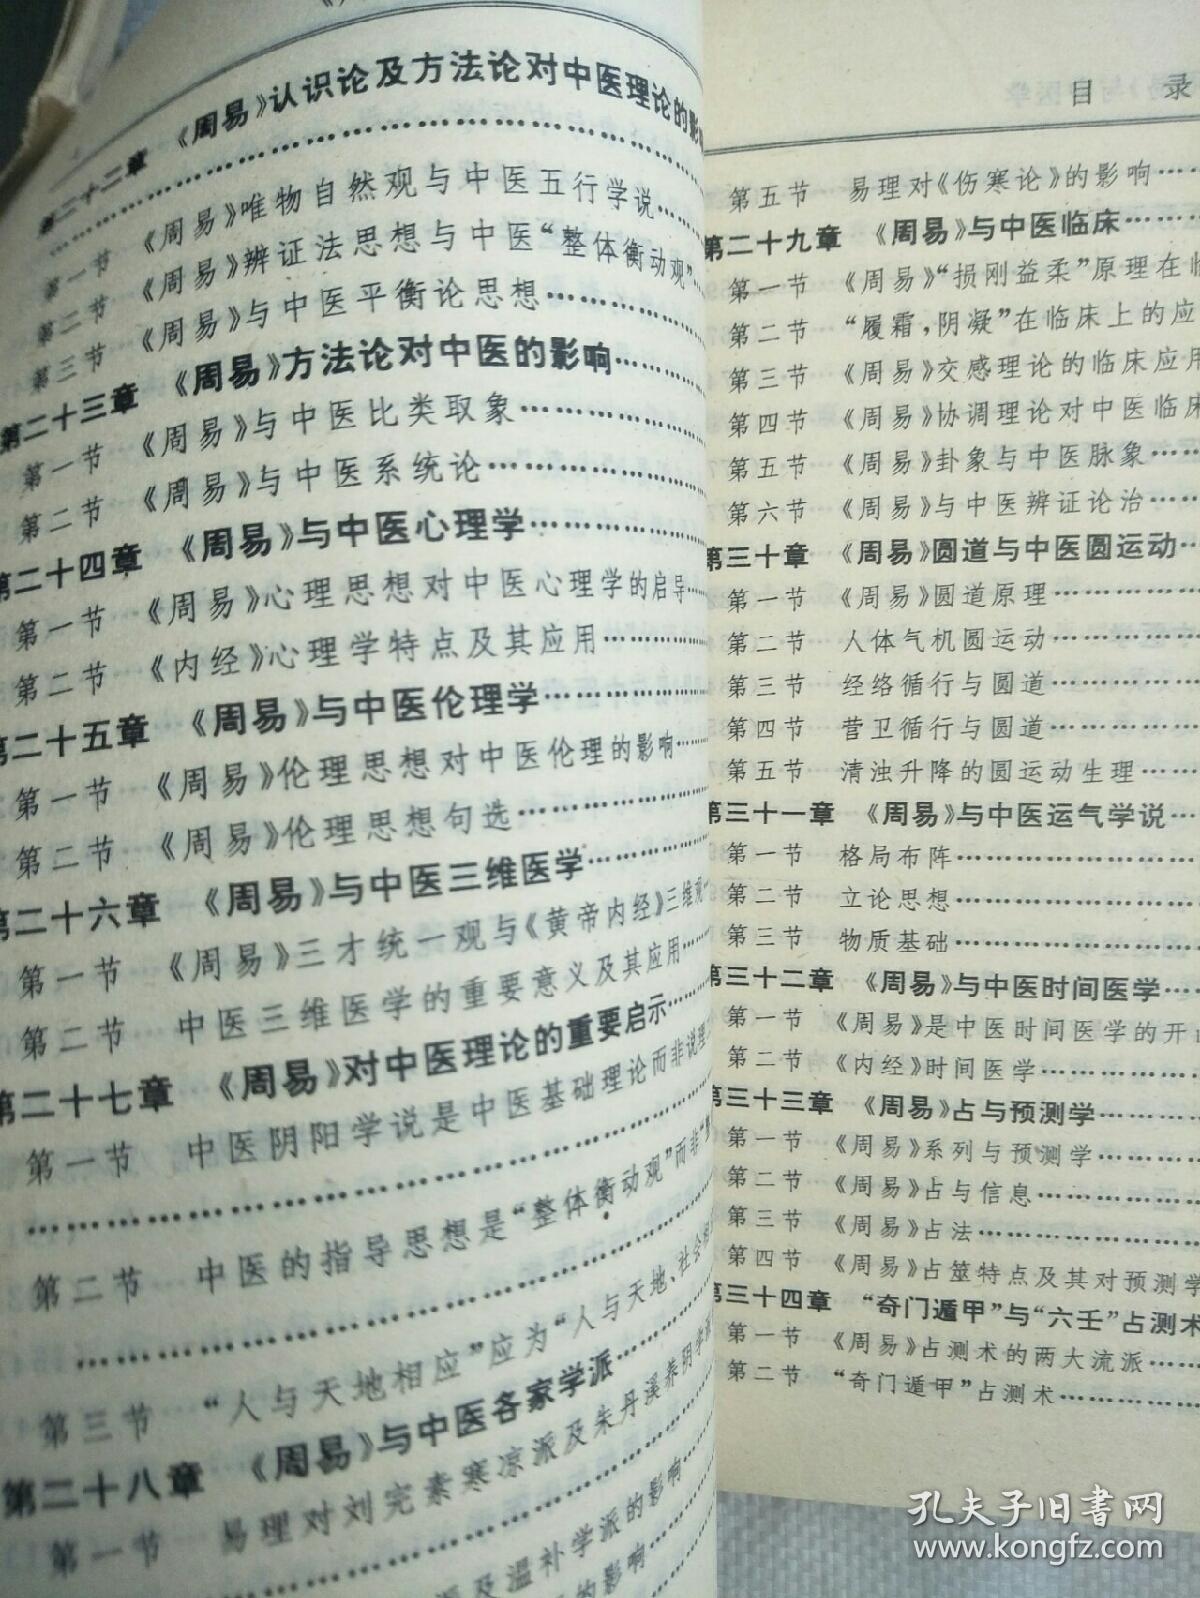 第二十二章 《周易》认识论及方法论对中医理论的影
第一节 《周易》唯物自然观与中医五行学说……
第二节 《周易》辨证法思想与中医“整体衡动观”…
第三节 《周易》与中医平衡论思想……
第二十三章 《周易》方法论对中医的影响……
第一节 《周易》与中医比类取象……
第二节 《周易》与中医系统论……
第二十四章 《周易》与中医心理学……
第一节 《周易》心理思想对中医心理学的启导……
第二节 《内经》心理学特点及其应用……
第二十五章 《周易》与中医伦理学……
第一节 《周易》伦理思想对中医伦理的影响……
第二节 《周易》伦理思想句选……
第二十六章 《周易》与中医三维医学……
第一节 《周易》三才统一观与《黄帝内经》三维观…
第二节 中医三维医学的重要意义及其应用……
第二十七章 《周易》对中医理论的重要启示……
第一节 中医阴阳学说是中医基础理论而非说理
……
第二节 中医的指导思想是“整体衡动观”而非“整
……
第三节 “人与天地相应”应为“人与天地、社会相
第二十八章 《周易》与中医各家学派……
第一节 易理对刘完素寒凉派及朱丹溪养阴学派
派及温补学派的影响……
的影响……
目 录
第五节 易理对《伤寒论》的影响……
第二十九章 《周易》与中医临床……
第一节 《周易》“损刚益柔”原理在临
第二节 “履霜，阴凝”在临床上的应
第三节 《周易》交感理论的临床应用
第四节 《周易》协调理论对中医临床
第五节 《周易》卦象与中医脉象……
第六节 《周易》与中医辨证论治……
第三十章 《周易》圆道与中医圆运动……
第一节 《周易》圆道原理……
第二节 人体气机圆运动……
第三节 经络循行与圆道……
第四节 营卫循行与圆道……
第五节 清浊升降的圆运动生理……
第三十一章 《周易》与中医运气学说……
第一节 格局布阵……
第二节 立论思想……
第三节 物质基础……
第三十二章 《周易》与中医时间医学……
第一节 《周易》是中医时间医学的开
第二节 《内经》时间医学……
第三十三章 《周易》占与预测学……
第一节 《周易》系列与预测学……
第二节 《周易》占与信息……
第三节 《周易》占法……
第四节 《周易》占筮特点及其对预测学
第三十四章 “奇门遁甲”与“六壬”占测术
第一节 《周易》占测术的两大流派……
第二节 “奇门遁甲”占测术……
孔夫子旧书网
www.kongfz.com